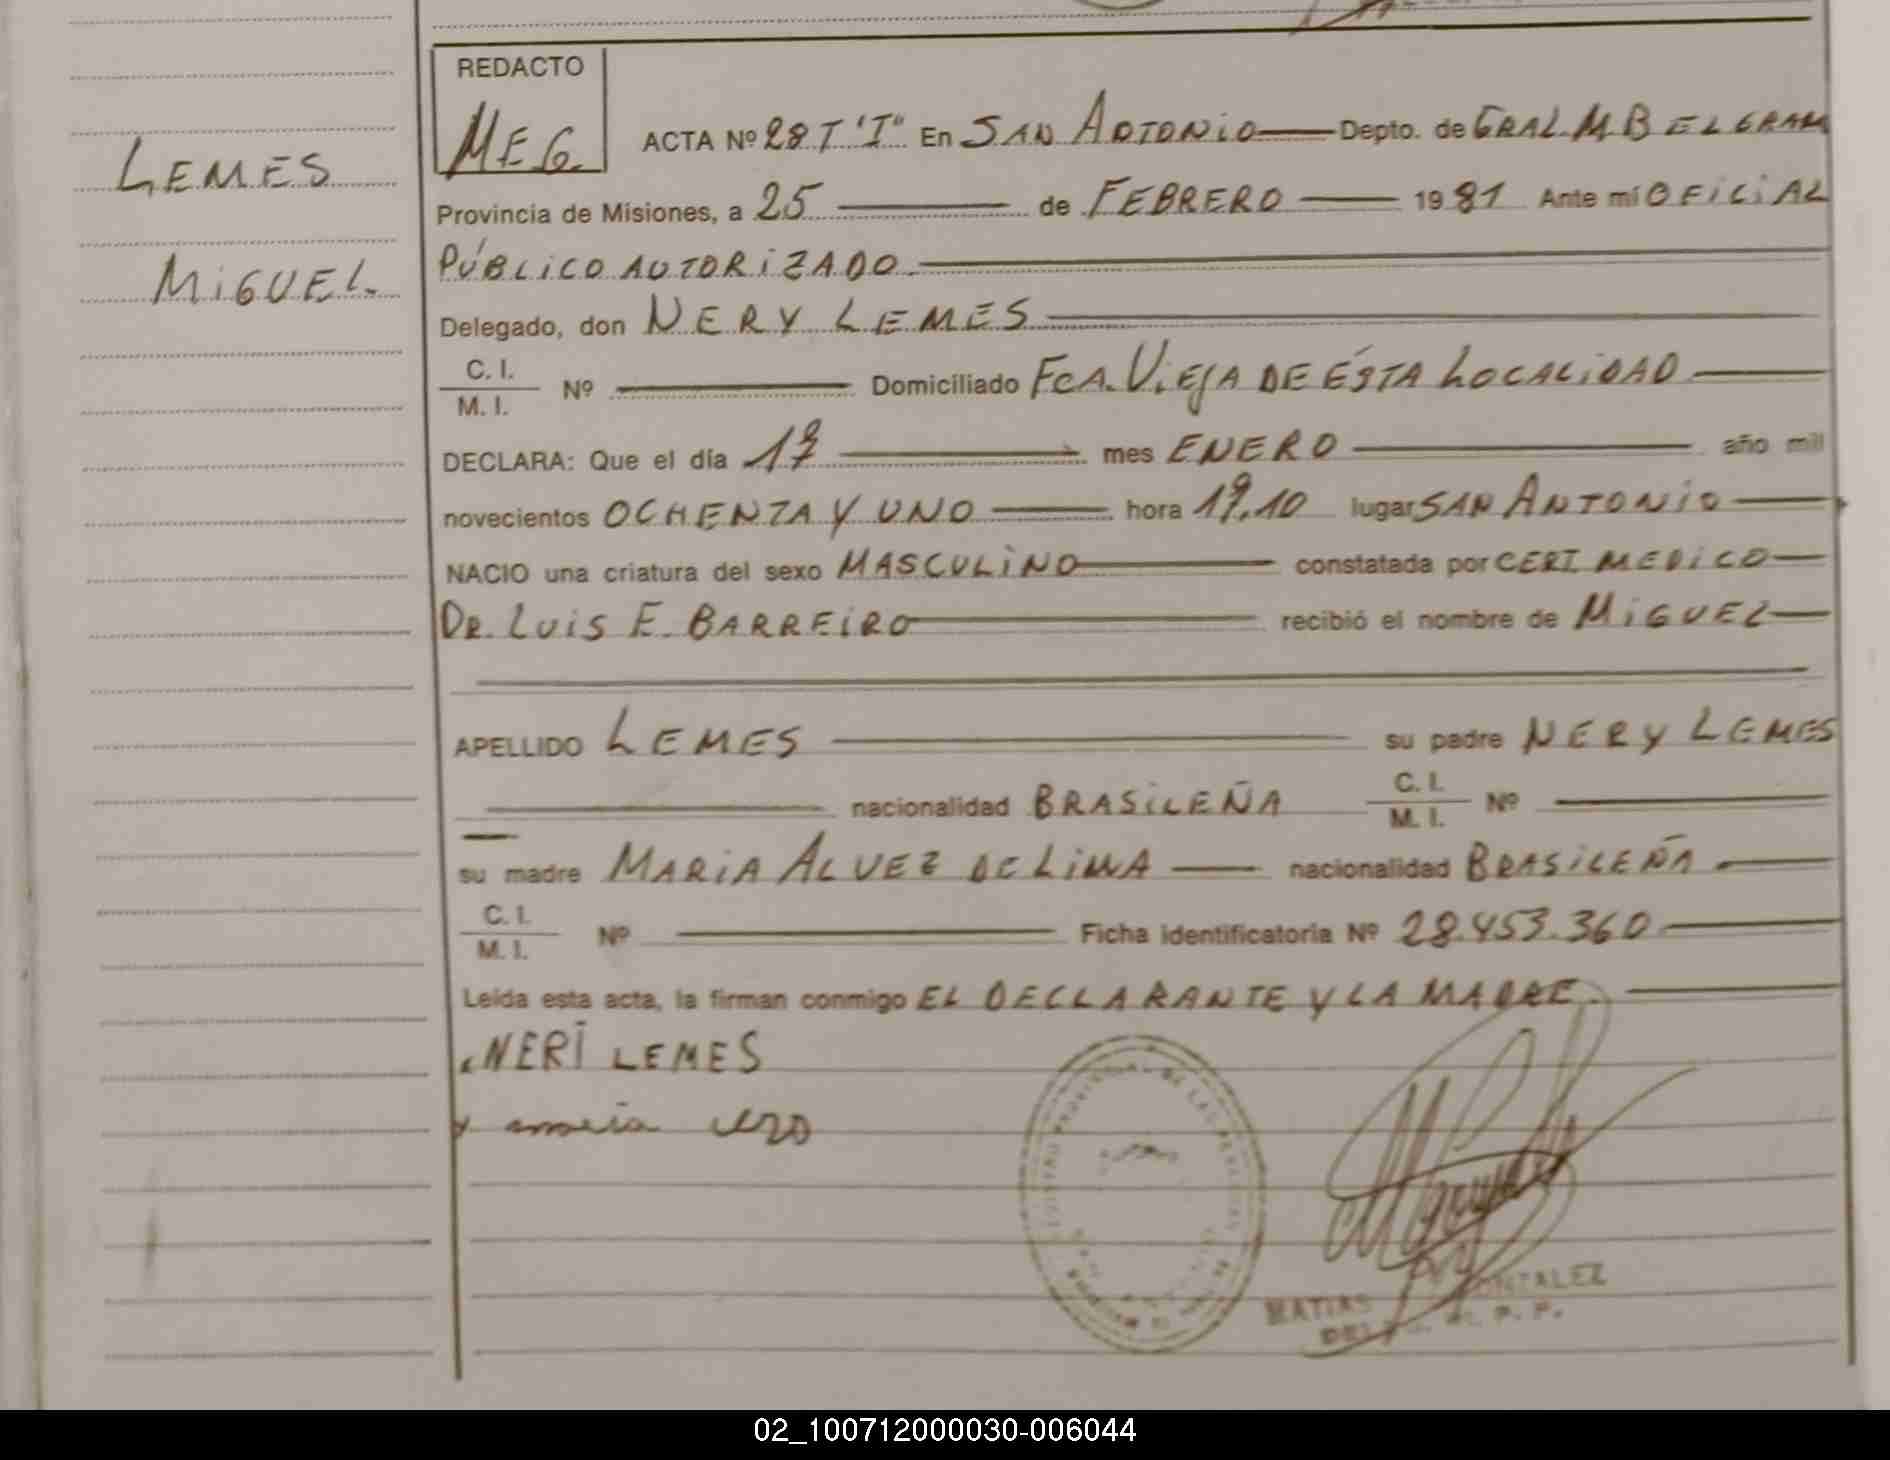 LEMES
MIGUEL.
REDACTO
MEG.
ACTA Nº 28 T "I" En SAN ANTONIO Depto. de GRAL. M. BELGRANO
Provincia de Misiones, a 25 de FEBRERO 1981 Ante mí OFICIAL
PÚBLICO AUTORIZADO.
Delegado, don NERY LEMES
C. I.
M. I. Nº Domiciliado FCA. VIEJA DE ÉSTA LOCALIDAD
DECLARA: Que el día 17 mes ENERO año mil
novecientos OCHENTA Y UNO hora 19.10 lugar SAN ANTONIO
NACIO una criatura del sexo MASCULINO constatada por CERT. MEDICO
DR. LUIS E. BARREIRO recibió el nombre de MIGUEL
APELLIDO LEMES su padre NERY LEMES
nacionalidad BRASILEÑA C. I.
M. I. Nº
su madre MARIA ALVEZ DE LIMA nacionalidad BRASILEÑA
C. I.
M. I. Nº Ficha identificatoria Nº 28.453.360
Leída esta acta, la firman conmigo EL DECLARANTE Y LA MADRE.
NERI LEMES
MATIAS GONZALEZ
02_100712000030-006044